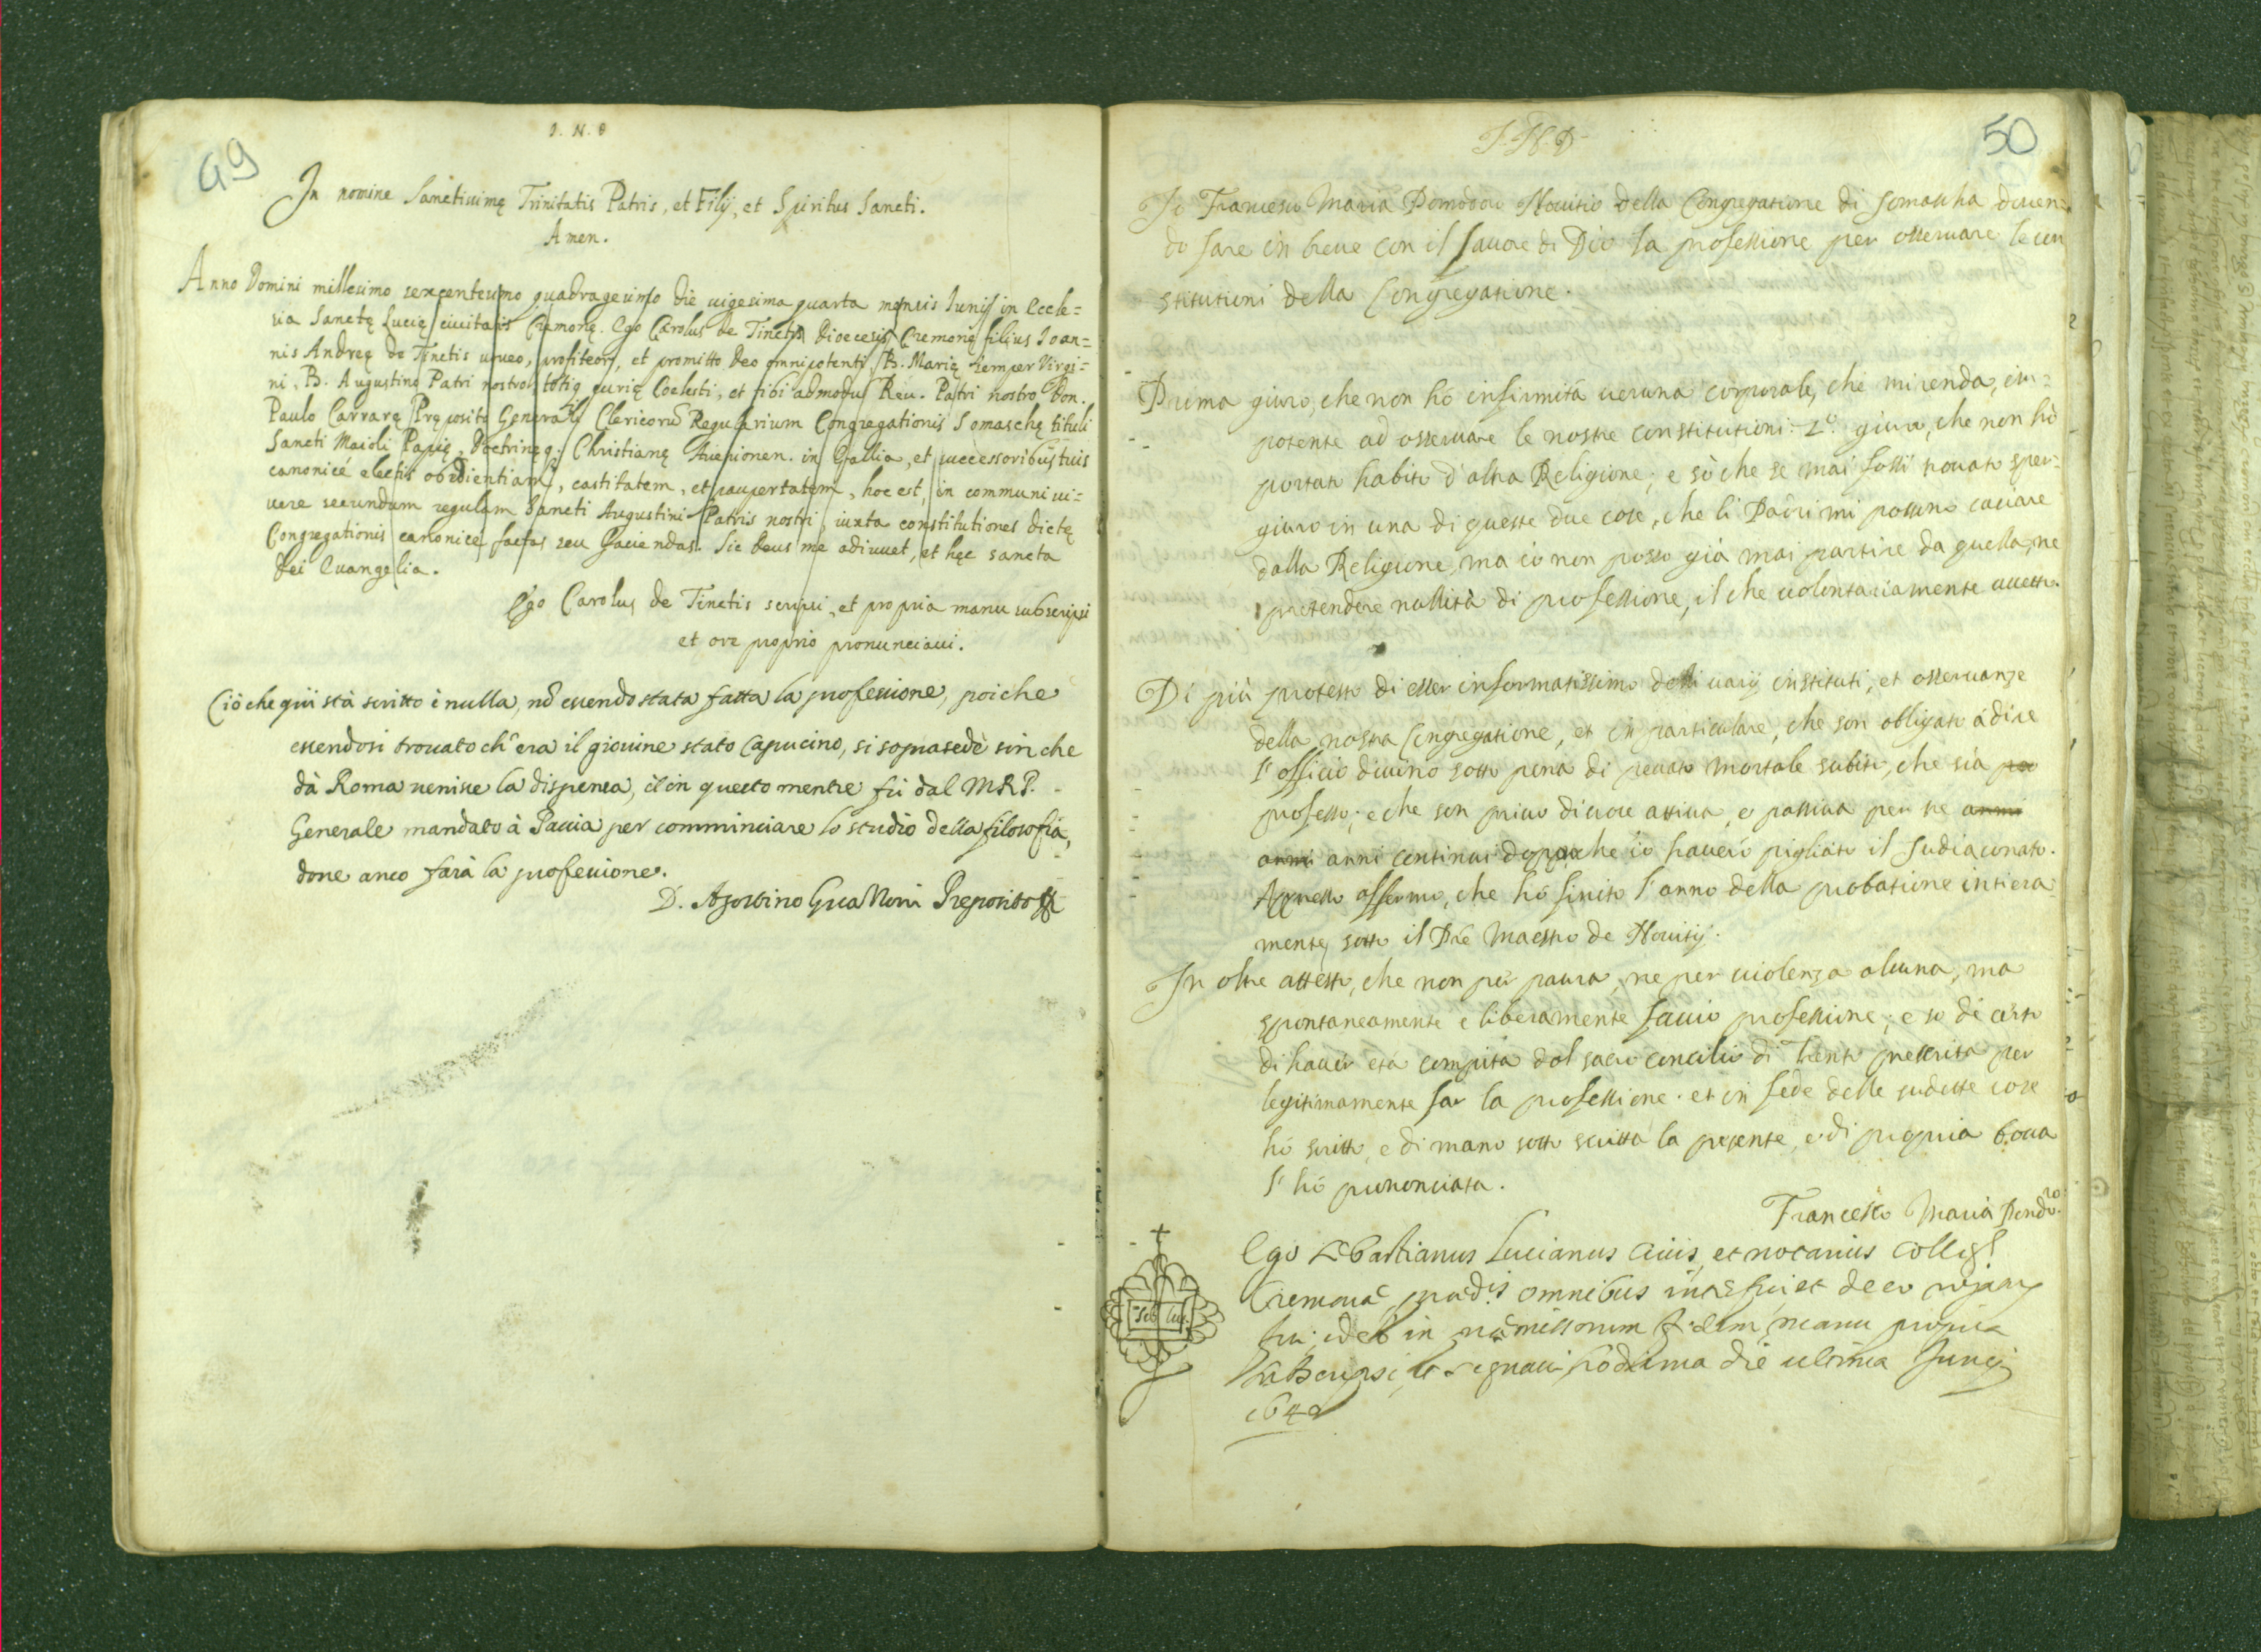 49
I. N. D
In nomine Sanctissimę Trinitatis Patris, et Filij, et Spiritus Sancti.
Amen.
Anno Domini millesimo sexcentesimo quadragesimo die uigesima quarta mensis Iunij in Eccle=
sia Sanctę Lucię ciuitatis Cremonę. Ego Carolus de Tinctis Dioecesis Cremonę filius Ioan=
nis Andreę de Tinctis uoueo, profiteor, et promitto Deo omnipotenti, B. Marię semper Virgi=
ni, B. Augustino Patri nostro totiq curię Coelesti, et tibi admodū Reu. Patri nostro Don.
Paulo Carrarę Pręposito Generali Clericorū Regularium Congregationis Somaschę tituli
Sancti Maioli Papię, Doctrinęq; Christianę Auenionen. in Gallia, et successoribus tuis
canonicè electis obedientiam, castitatem, et paupertatem, hoc est, in communi ui=
uere secundum regulam Sancti Augustini Patris nostri iuxta constitutiones dictę
Congregationis canonicè factas seu faciendas. Sic Deus me adiuuet, et hęc sancta
Dei Euangelia.
Ego Carolus de Tinctis scripsi, et propria manu subscripsi
et ore proprio pronunciaui.
Ciò che quì stà scritto è nulla, nō essendo stata fatta la professione, poiche
essendosi trouato ch'era il giouine stato Capucino, si soprasedè sin che
dà Roma uenisse la dispensa, et in questo mentre fù dal M.R.P.
Generale mandato à Pauia per comminciare lo studio della filosofia,
doue anco farà la professione.
D. Agostino Preposito
50
I. N. D
Io Francesco Maria Pomodoro Nouitio della Congregatione di Somascha douen=
do fare in breue con il fauore di Dio la professione per osseruare le con
stitutioni della Congregatione.
Prima giuro, che non hò infirmità ueruna corporale, che mi renda, im=
potente ad osseruare le nostre constitutioni. 2º giuro, che non hò
portato habito d'altra Religione; e sò che se mai fossi trouato sper=
giuro in una di queste due cose, che li Padri mi possono cacciare
dalla Religione, ma io non posso già mai partire da quella, ne
pretendere nullità di professione, il che uolontariamente accetto.
Di più protesto di esser informatissimo delli uarij instituti, et osseruanze
della nostra Congregatione, et in particulare, che son obligato à dire
l'officio diuino sotto pena di peccato mortale subito, che sia pro
professo; e che son priuo di uoce attiua, e passiua per tre anni
anni anni continui doppo che io hauerò pigliato il sudiaconato.
Appresso affermo, che hò finito l'anno della probatione intiera=
mente sotto il Prē Maestro de Nouitij.
In oltre attesto, che non per paura, ne per uiolenza alcuna, ma
spontaneamente e liberamente faccio professione; e so di certo
di hauer età compita dal sacro concilio di trento prescrita per
legitimamente far la professione. et in fede delle sudette cose
hò scritto, e di mano sotto scritta la presente, e di propria bocca
l'hò prononciata.
Francesco Maria Pomdro
Seb Luc.
Ego Sebastianus Lucianus ciuis, et notarius Collegi
Cremonę, omnibus interfui, et de eo rogatus
fui, ideò in pręmissorum fidem manu propria
subscripsi, et signaui die ultima Iunij
1640